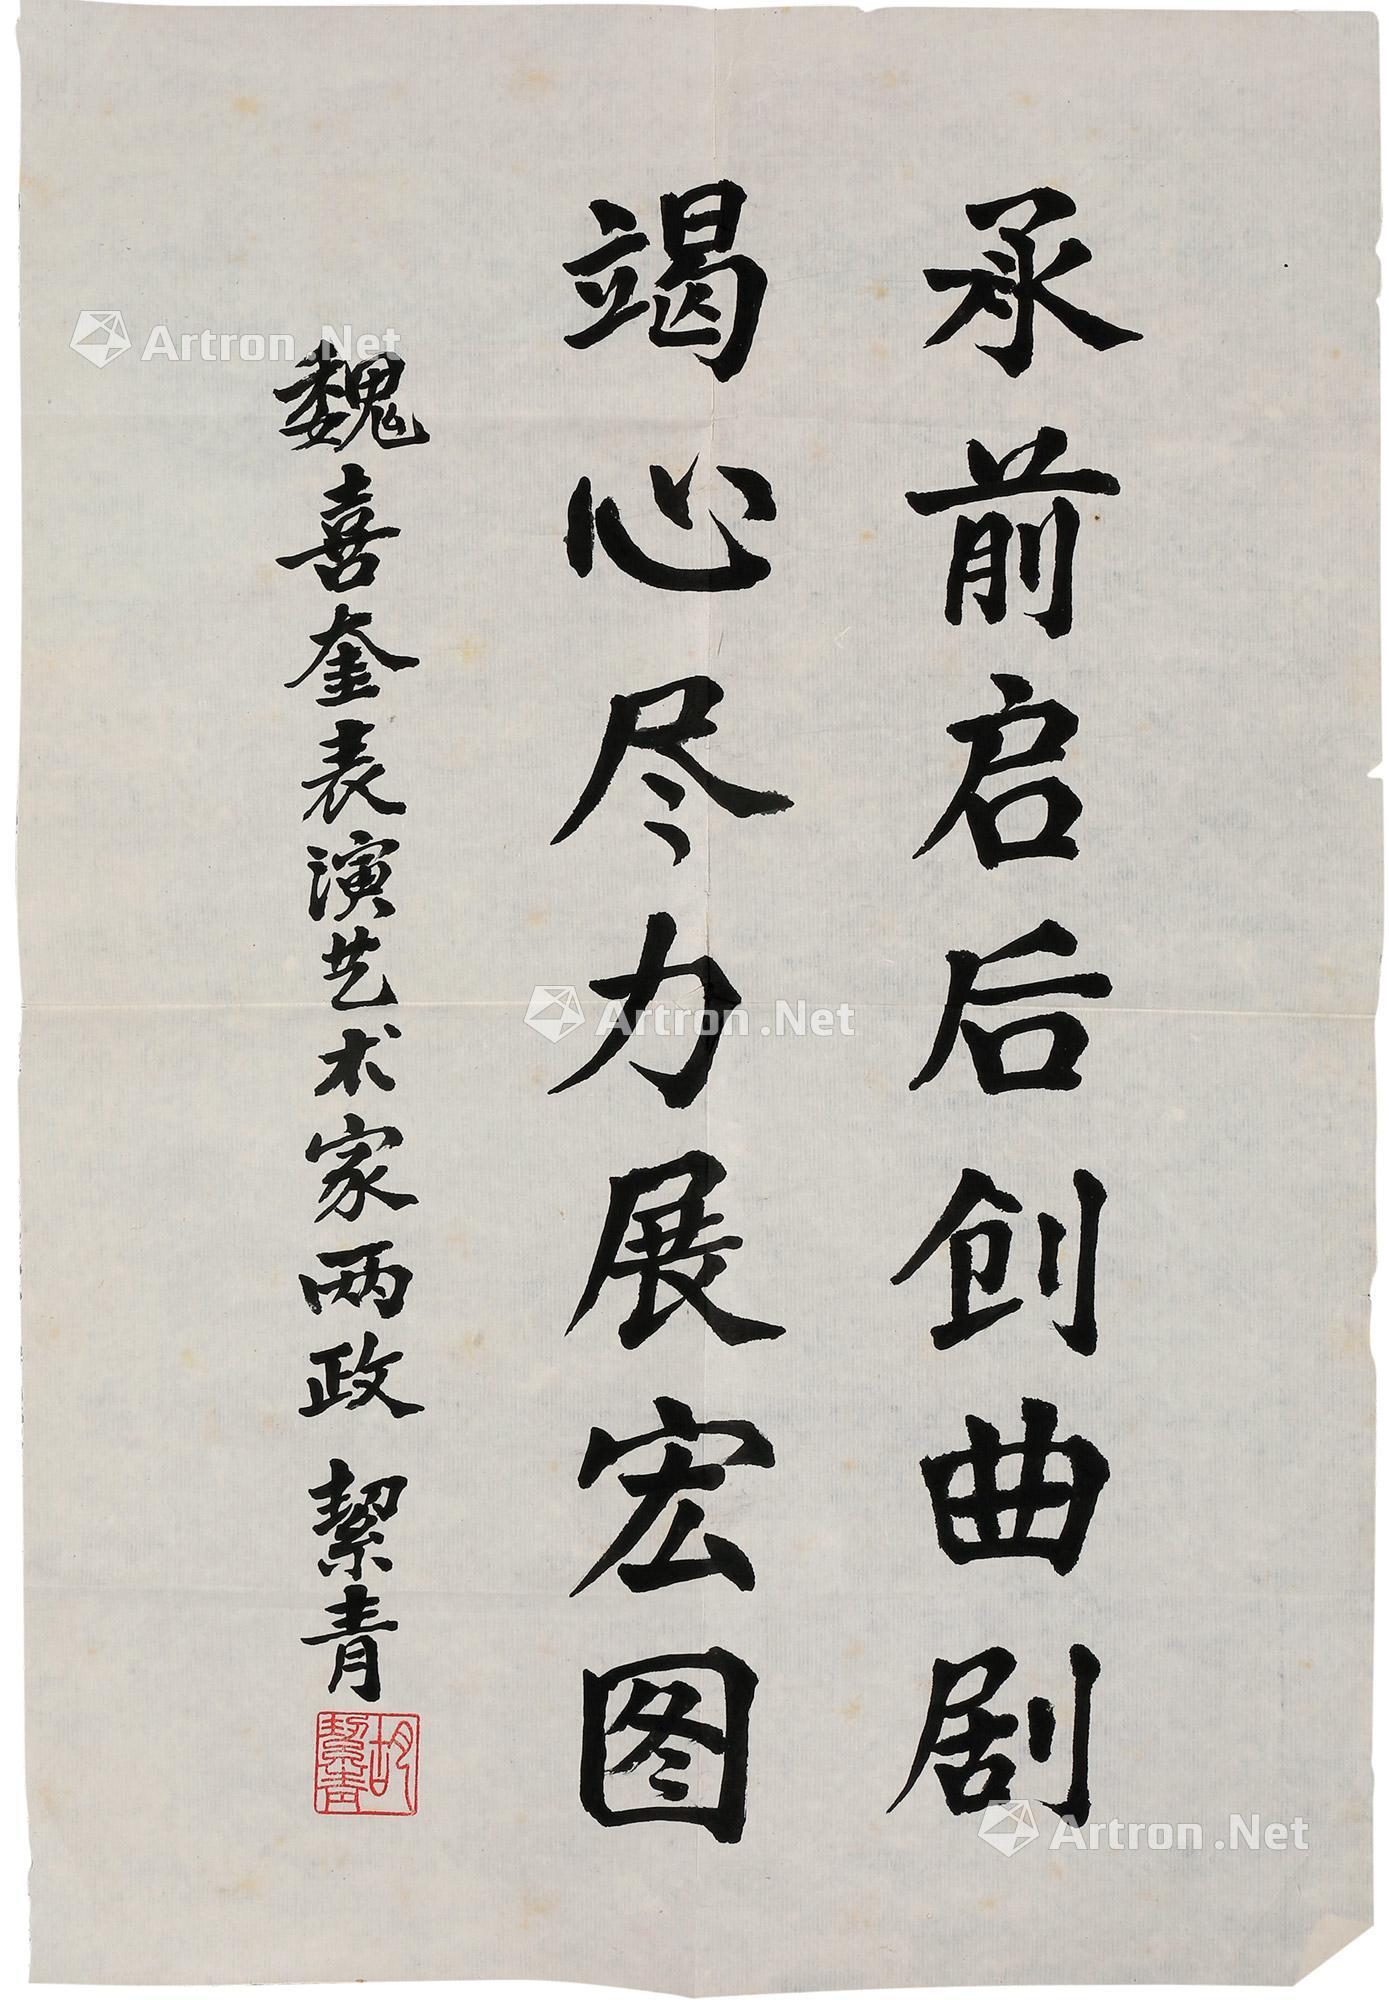 承前启后创曲剧
竭心尽力展宏图
魏喜奎表演艺术家两政 絜青
胡絜青
Artron.Net
Artron.Net
Artron.Net